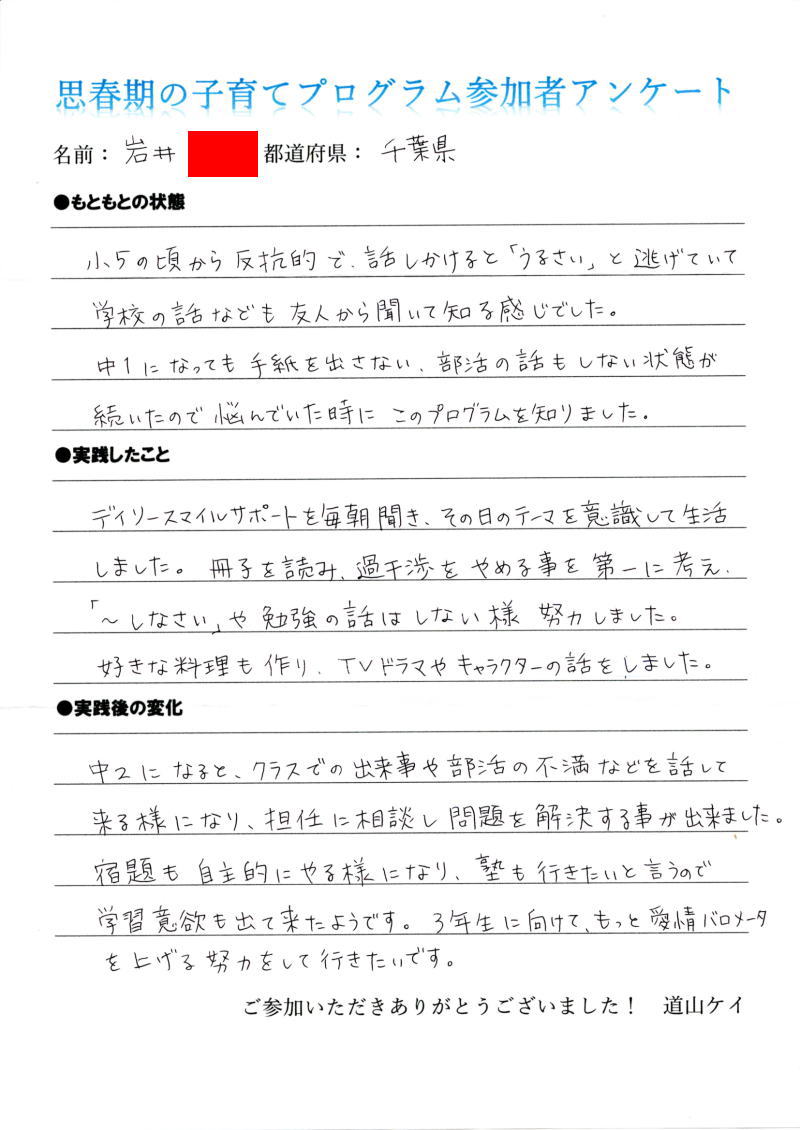 思春期の子育てプログラム参加者アンケート
名前： 岩井 都道府県： 千葉県
●もともとの状態
小5の頃から反抗的で、話しかけると「うるさい」と逃げていて
学校の話なども友人から聞いて知る感じでした。
中1になっても手紙を出さない、部活の話もしない状態が
続いたので悩んでいた時にこのプログラムを知りました。
●実践したこと
デイリースマイルサポートを毎朝聞き、その日のテーマを意識して生活
しました。冊子を読み、過干渉をやめる事を第一に考え、
「～しなさい」や勉強の話はしない様努力しました。
好きな料理も作り、TVドラマやキャラクターの話をしました。
●実践後の変化
中2になると、クラスでの出来事や部活の不満などを話して
来る様になり、担任に相談し問題を解決する事が出来ました。
宿題も自主的にやる様になり、塾も行きたいと言うので
学習意欲も出て来たようです。3年生に向けて、もっと愛情バロメータ
を上げる努力をして行きたいです。
ご参加いただきありがとうございました！ 道山ケイ